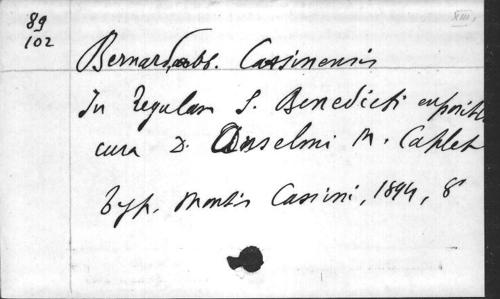 89
102
XIII,
Bernard, abb. Cassinensis
In Regulam S. Benedicti exposit
cura D. Anselmi M. Caplet
Typ. Montis Cassini, 1894, 8°